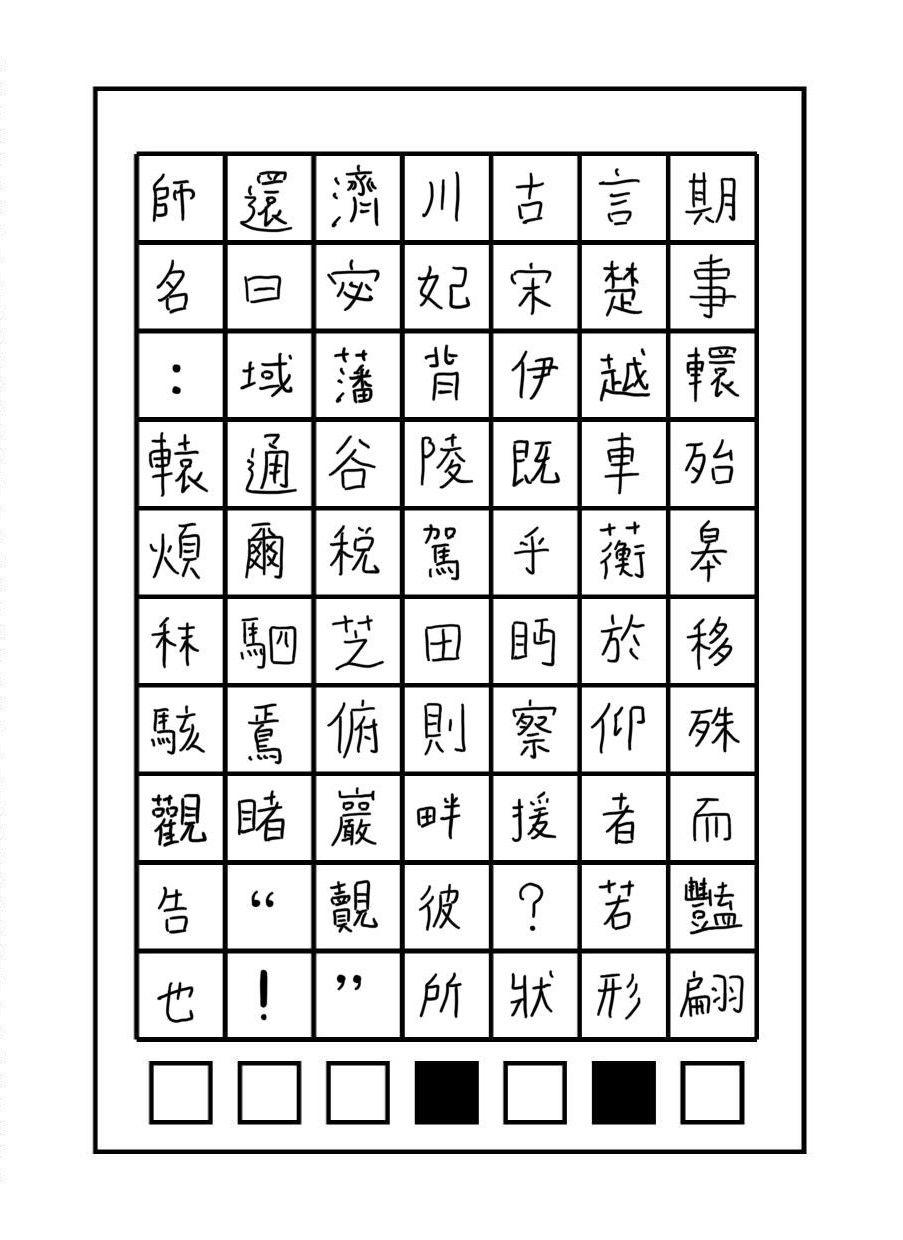 師還濟川古言期
名曰宓妃宋楚事
：域藩背伊越轘
轅通谷陵既車殆
煩爾税駕乎蘅皋
秣駟芝田眄於移
駭焉俯則察仰殊
觀睹巖畔援者而
告“覿彼？若豔
也！”所狀形翩